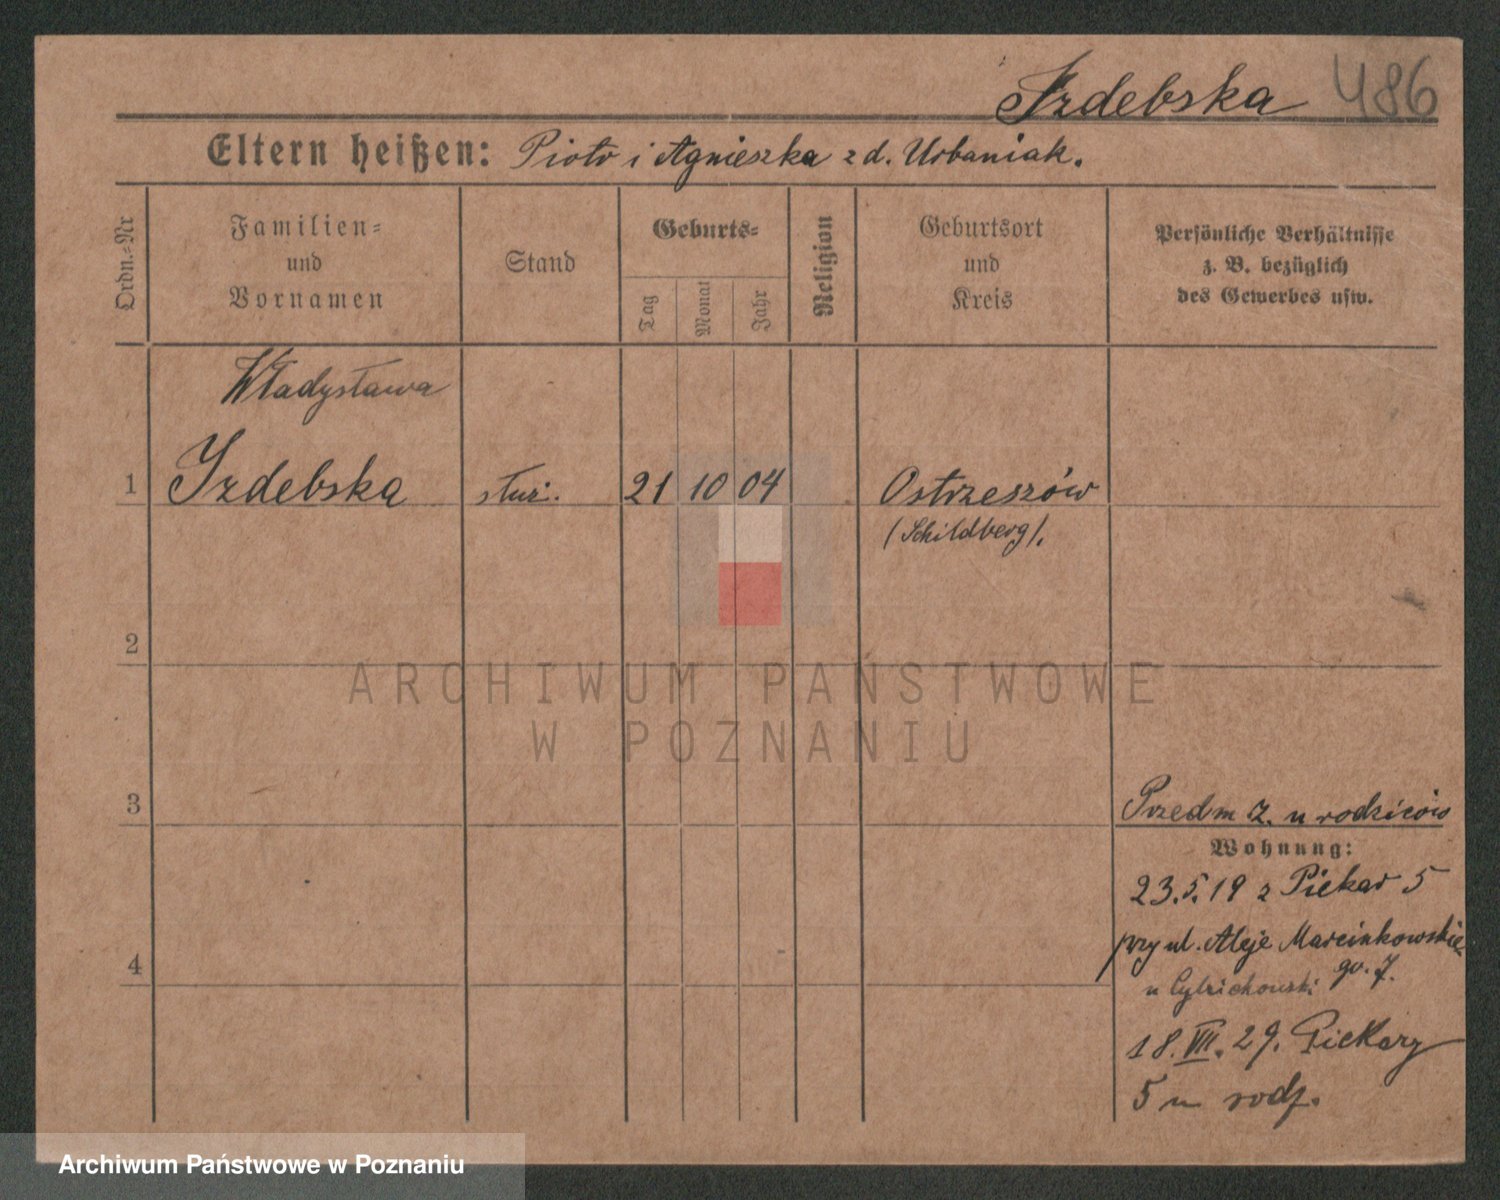 Izdebska 486
Eltern heißen: Piotr i Agnieszka z d. Urbaniak.
Ordn.-Nr
Familien-
und
Vornamen
Stand
Geburts-
Tag
Monat
Jahr
Religion
Geburtsort
und
Kreis
Persönliche Verhältnisse
z. B. bezüglich
des Gewerbes usw.
Władysława
1 Izdebska służ. 21 10 04 Ostrzeszów
(Schildberg).
2
ARCHIWUM PAŃSTWOWE
W POZNANIU
3
Przedm z. u rodziców
Wohnung:
23.5.19 z Piekar 5
przy ul. Aleje Marcinkowskie
4
u gr. 7.
18.VII.29. Piekary
5 u rodz.
Archiwum Państwowe w Poznaniu